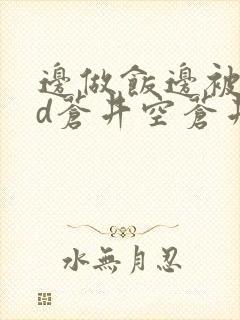 邊做飯邊被
d蒼井空蒼井
水無月忍